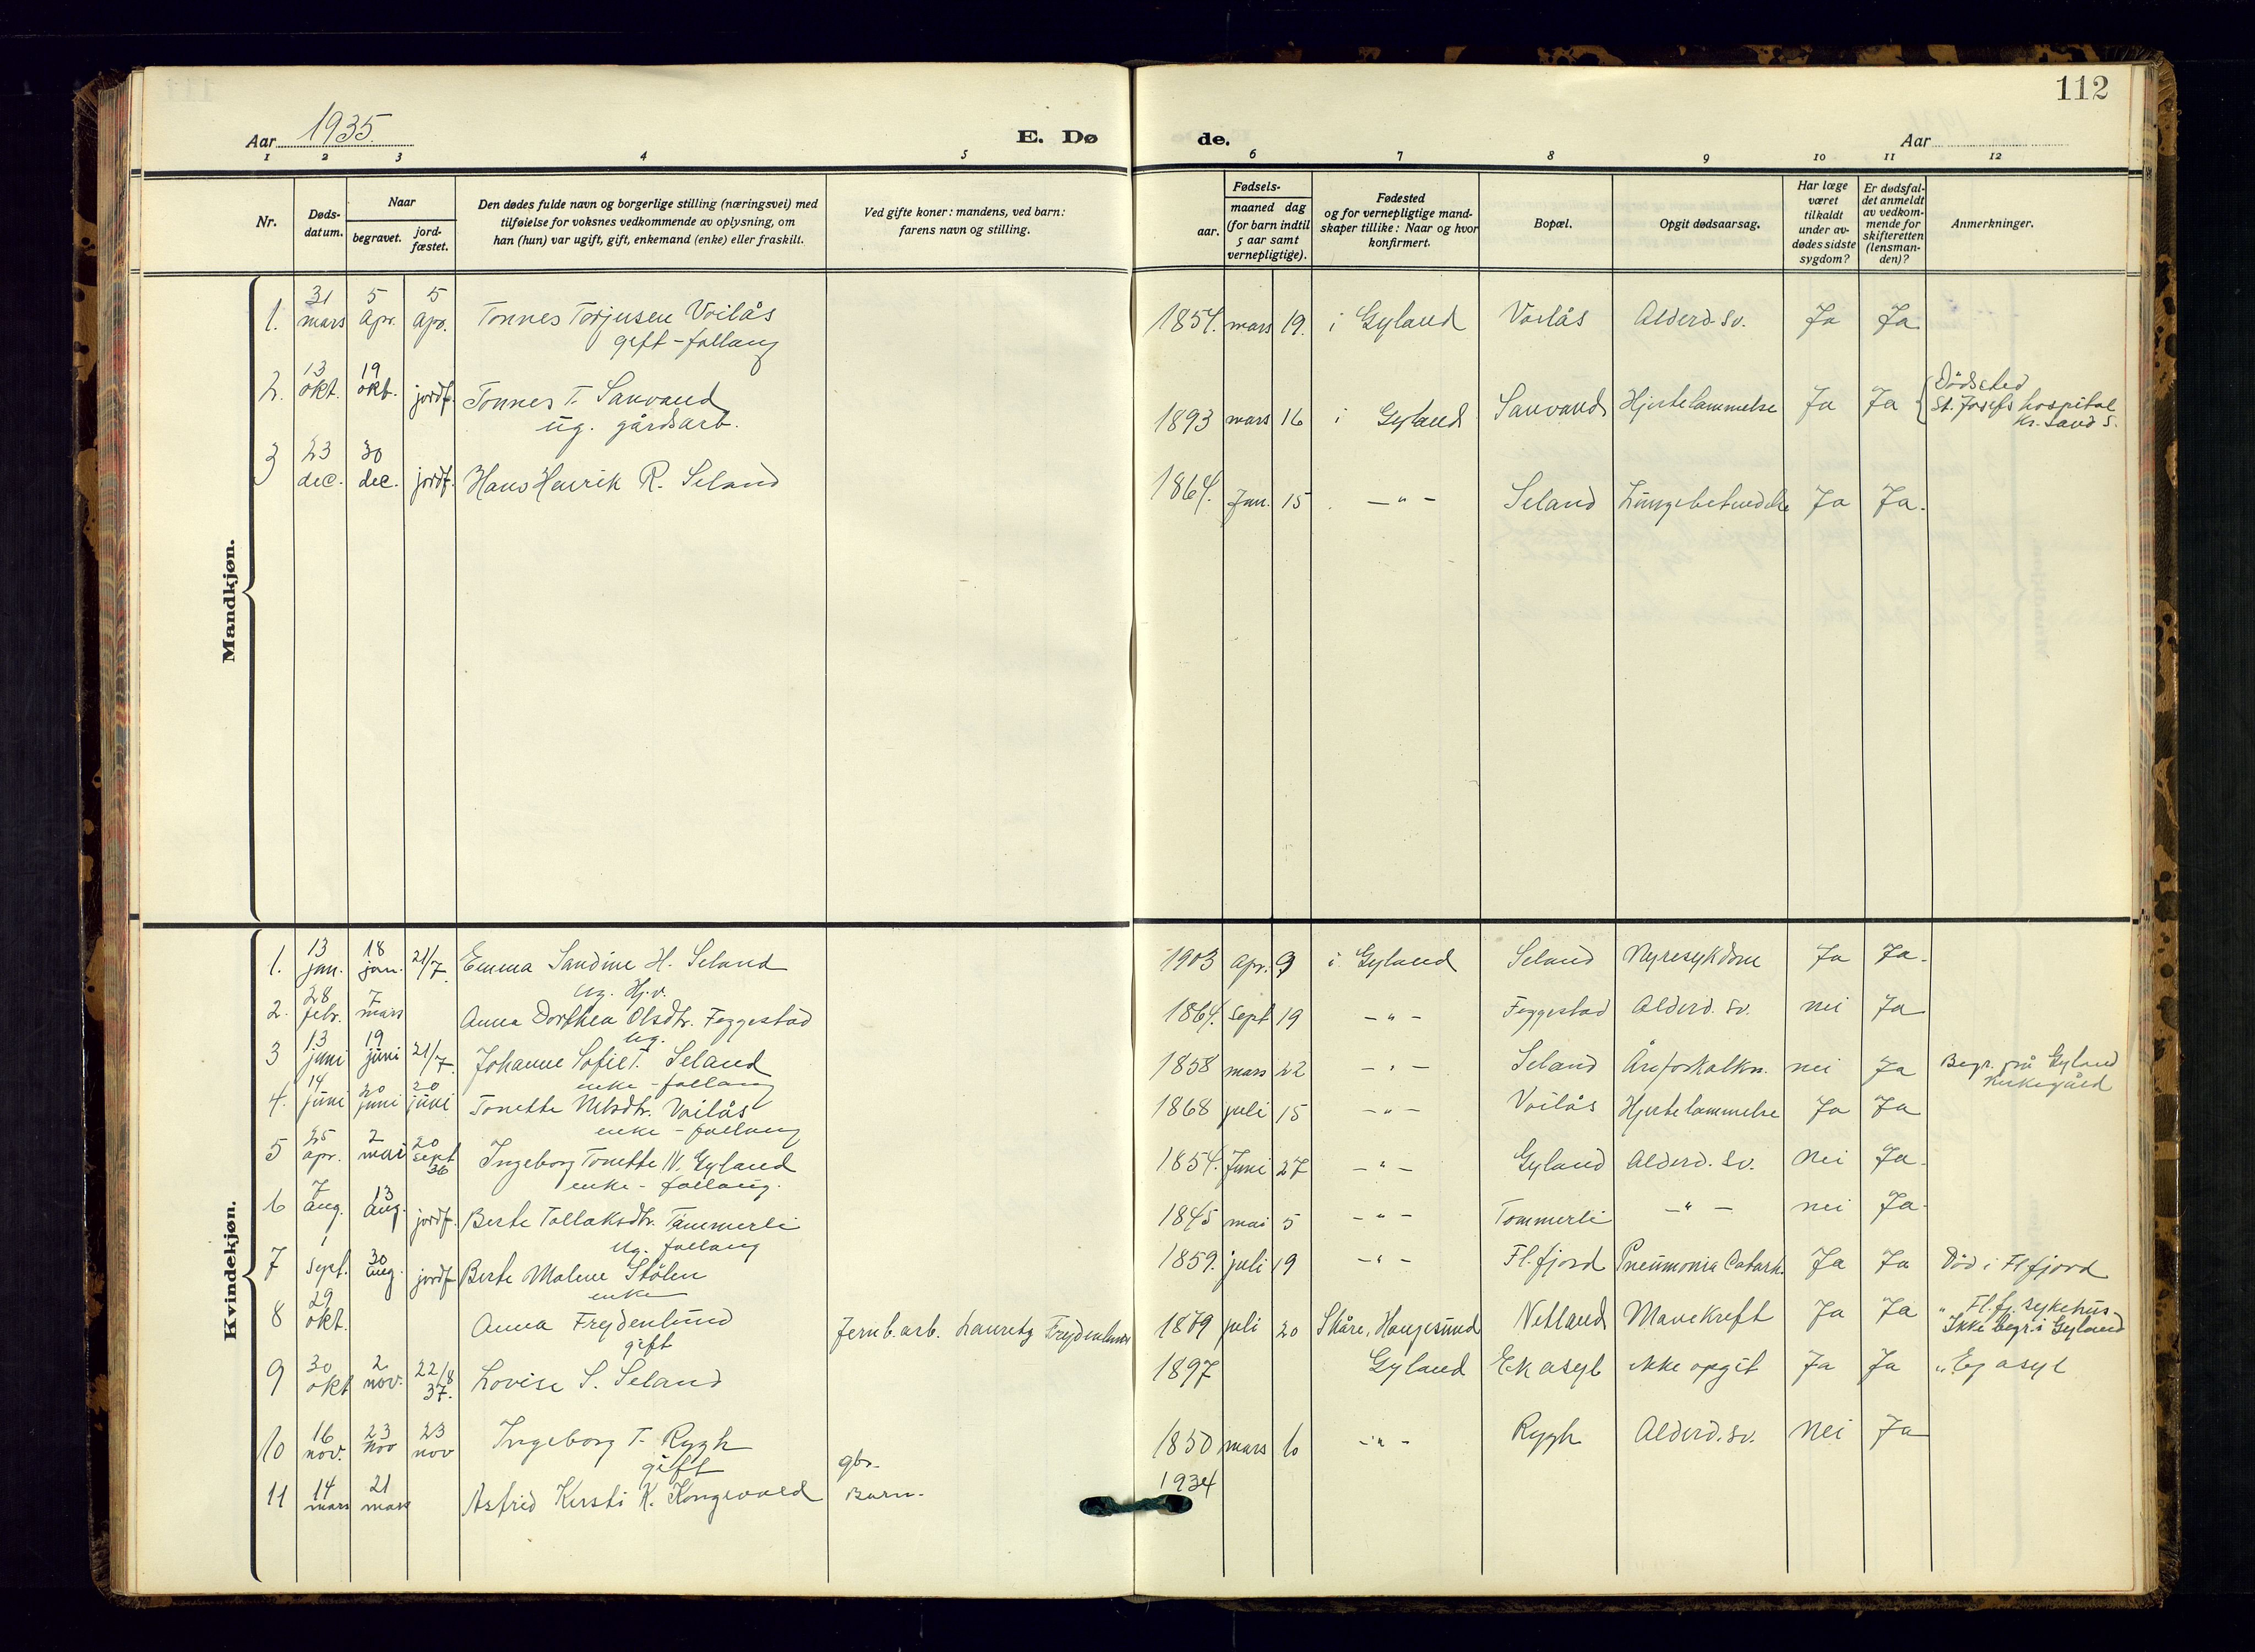 112
Aar 1935.
E. Dø de.
Aar
1 2 3 4 5 6 7 8 9 10 11 12
Nr.
Døds-
datum.
Naar
begravet.
jord-
fæstet.
Den dødes fulde navn og borgerlige stilling (næringsvei) med
tilføielse for voksnes vedkommende av oplysning, om
han (hun) var ugift, gift, enkemand (enke) eller fraskilt.
Ved gifte koner: mandens, ved barn:
farens navn og stilling.
Fødsels-
aar.
maaned dag
(for barn indtil
5 aar samt
vernepligtige).
Fødested
og for vernepligtige mand-
skaper tillike: Naar og hvor
konfirmert.
Bopæl.
Opgit dødsaarsag.
Har læge
været
tilkaldt
under av-
dødes sidste
sygdom?
Er dødsfal-
det anmeldt
av vedkom-
mende for
skifteretten
(lensman-
den)?
Anmerkninger.
Mandkjøn.
1. 31 mars 5 apr. 5 apr. Tonnes Torjusen Voilås 1854. mars 19. i Gyland Voilås Alderd. sv. Ja Ja
gift - follaug
2. 13 okt. 19 okt. jordf. Tonnes T. Sauvand 1893 mars 16 i Gyland Sauvand Hjertelammelse Ja Ja Dödsted
ug. gårdsarb. St. Josefs hospital
Kr. sand S.
3 23 dec. 30 dec. jordf. Hans Henrik R. Seland 1864. Jan. 15 - " - Seland Lungebetendelse Ja Ja.
Kvindekjøn.
1. 13 jan. 18 jan. 21/7. Emma Sandine H. Seland 1903 apr. 9 i Gyland Seland Nyresykdom Ja Ja.
ug. Hj.v.
2. 28 febr. 7 mars Anna Dorthea Olsdtr. Feggestad 1864. sept 19 - " - Feggestad Alderd. sv. nei Ja
ug.
3 13 juni 19 juni 21/7. Johanne Sofie T. Seland 1858 mars 22 - " - Seland Åreforkalkn. nei Ja Begr. på Gyland
enke - follaug kirkegård
4. 14 juni 20 juni 20 juni Tonette Nilsdtr. Voilås 1868 juli 15 - " - Voilås Hjertelammelse Ja Ja
enke - follaug
5 25 apr. 2 mai 20 sept 36 Ingeborg Tonette N. Gyland 1854. Juni 27 - " - Gyland Alderd. sv. Nei Ja.
enke - follaug.
6 7 aug. 13 aug. jordf. Berte Tollaksdtr. Tømmerli 1845 mai 5 - " - Tommerli - " - nei Ja.
ug. follaug
7 1 sept. 30 aug. jordf Berte Malene Stölen 1859. juli 19 - " - Fl.fjord Pneumonia Catarh. Ja Ja Död i Flfjord
enke
8 29 okt. Anna Frydenlund Jernb. arb. Lauretz Frydenlund 1879 juli 20 Skåre, Haugesund Netland Mavekreft Ja Ja " Fl.fj. sykehus
gift Ikke begr. i Gyland
9 30 okt 2 nov. 22/8 37. Lovise S. Seland 1897 Gyland Ek asyl ikke opgit Ja Ja " Eg asyl
10 16 nov. 23 nov 23 nov Ingeborg T. Rygh 1850 mars 6 - " - Rygh Alderd. sv. Nei Ja
gift gbr.
11 14 mars 21 mars Astrid Kersti K. Kongevold Barn. 1934